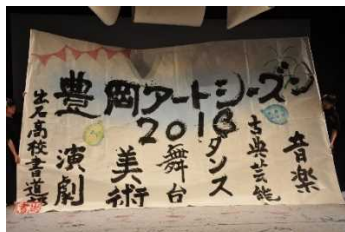 豊岡アートシーズン
2018
音楽
古典芸能
ダンス
舞台
美術
演劇
出石高校書道部